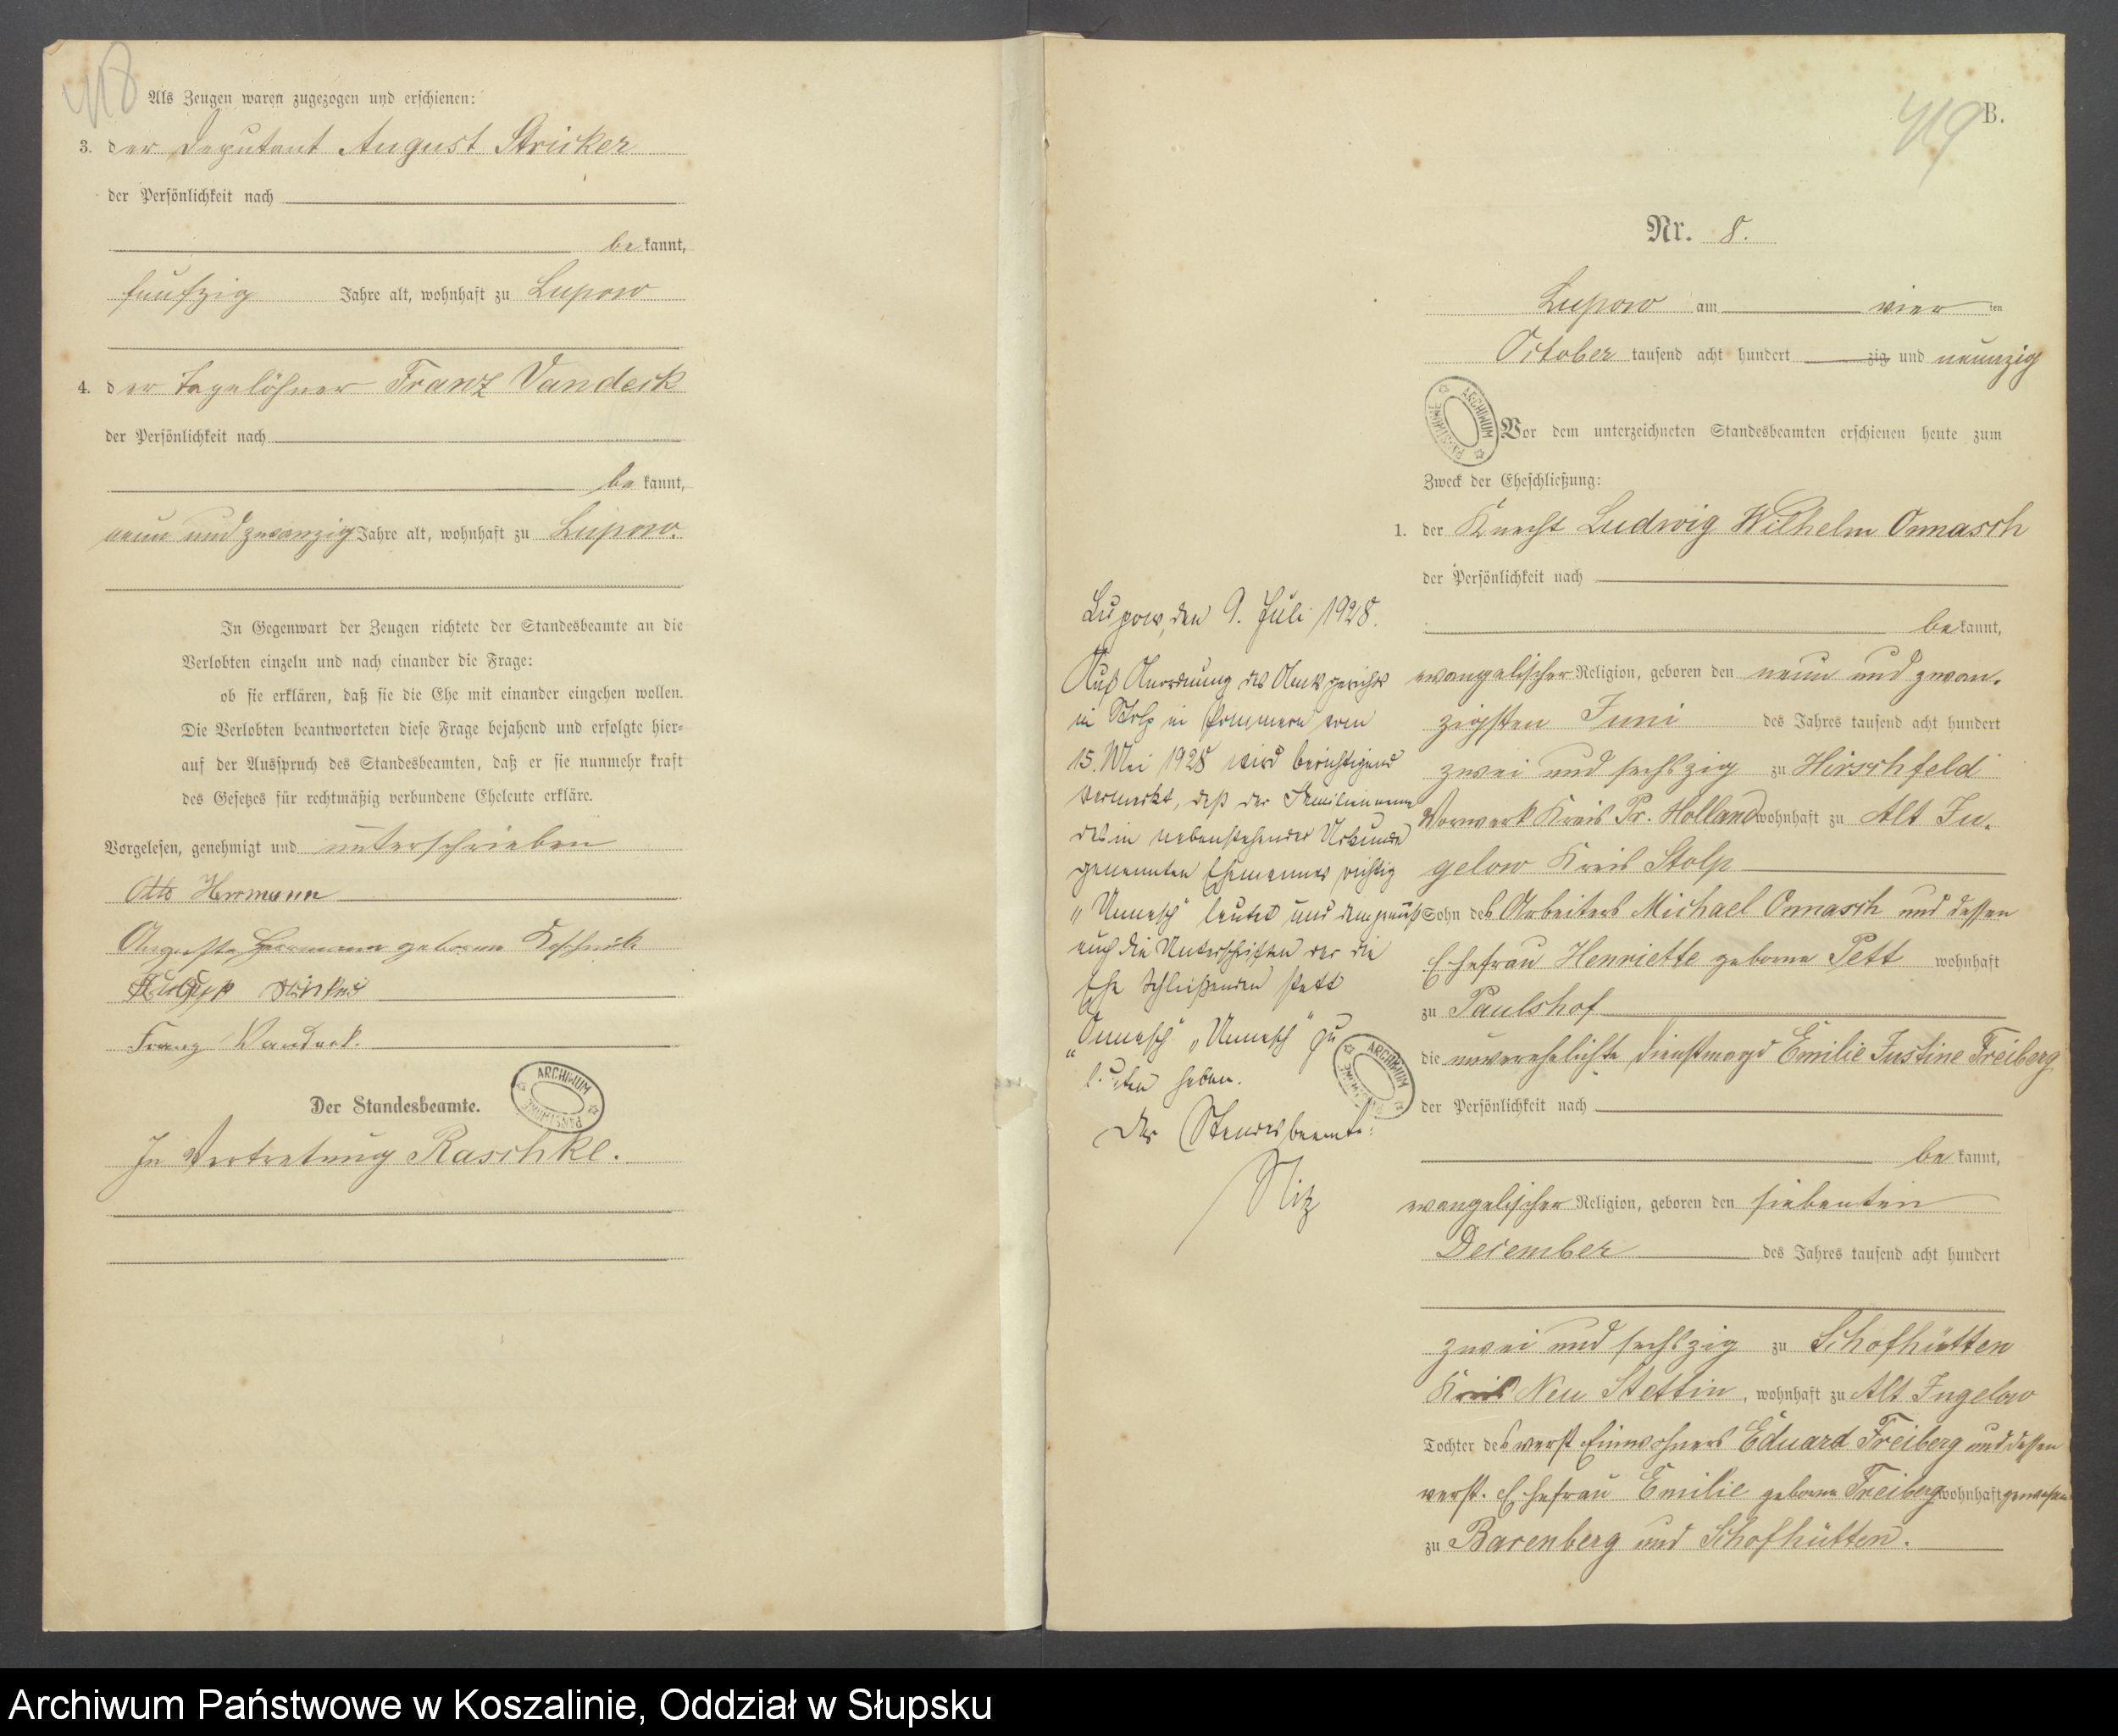 418
Als Zeugen waren zugezogen und erschienen:
3. der Deputant August Stricker
der Persönlichkeit nach
be kannt,
funfzig Jahre alt, wohnhaft zu Lupow
4. der Tagelöhner Franz Vandeck
der Persönlichkeit nach
be kannt,
neun und zwanzig Jahre alt, wohnhaft zu Lupow.
In Gegenwart der Zeugen richtete der Standesbeamte an die
Verlobten einzeln und nach einander die Frage:
ob sie erklären, daß sie die Ehe mit einander eingehen wollen.
Die Verlobten beantworteten diese Frage bejahend und erfolgte hier=
auf der Ausspruch des Standesbeamten, daß er sie nunmehr kraft
des Gesetzes für rechtmäßig verbundene Eheleute erkläre.
Vorgelesen, genehmigt und unterschrieben
Otto Herrmann
Auguste Herrmann geborene
Franz Vandeck.
Der Standesbeamte.
ARCHIWUM PAŃSTWOWE
In Vertretung Raschke.
419
B.
Nr. 8.
Lupow am vier ten
October tausend acht hundert zig und neunzig
ARCHIWUM PAŃSTWOWE
Vor dem unterzeichneten Standesbeamten erschienen heute zum
Zweck der Eheschließung:
1. der Knecht Ludwig Wilhelm Onnasch
der Persönlichkeit nach
be kannt,
evangelischer Religion, geboren den neun und zwan-
zigsten Juni des Jahres tausend acht hundert
zwei und sechszig zu Hirschfeld
Vorwerk Kreis Pr. Holland wohnhaft zu Alt Ju-
gelow Kreis Stolp
Sohn des Arbeiters Michael Onnasch und dessen
Ehefrau Henriette geborne Pett wohnhaft
zu Paulshof
die unverehelichte Dienstmagd Emilie Justine Freiberg
der Persönlichkeit nach
be kannt,
evangelischer Religion, geboren den siebenten
December des Jahres tausend acht hundert
zwei und sechszig zu Schofhütten
Kreis Neu Stettin, wohnhaft zu Alt Jugelow
Tochter des verst. Einwohners Eduard Freiberg und dessen
verst. Ehefrau Emilie geborne Freiberg wohnhaft gewesen
zu Barenberg und Schofhütten.
Lupow, den 9. Juli 1928.
Auf Anordnung des Amtsgerichts
in Stolp in Pommern vom
15. Mai 1928 wird berichtigend
vermerkt, daß der Familienname
des in nebenstehender Urkunde
genannten Ehemannes richtig
„Unnasch" lautet und demgemäß
auch die Unterschriften der die
Ehe Schließenden statt
„Onnasch" „Unnasch" zu
lauten haben.
Der Standesbeamte:
Nitz
ARCHIWUM PAŃSTWOWE
Archiwum Państwowe w Koszalinie, Oddział w Słupsku